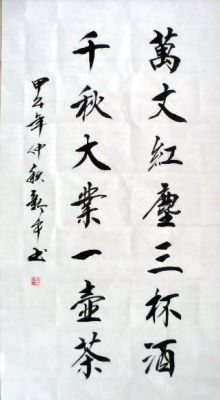 萬丈紅塵三杯酒
千秋大業一壺茶
甲午年仲秋新平书